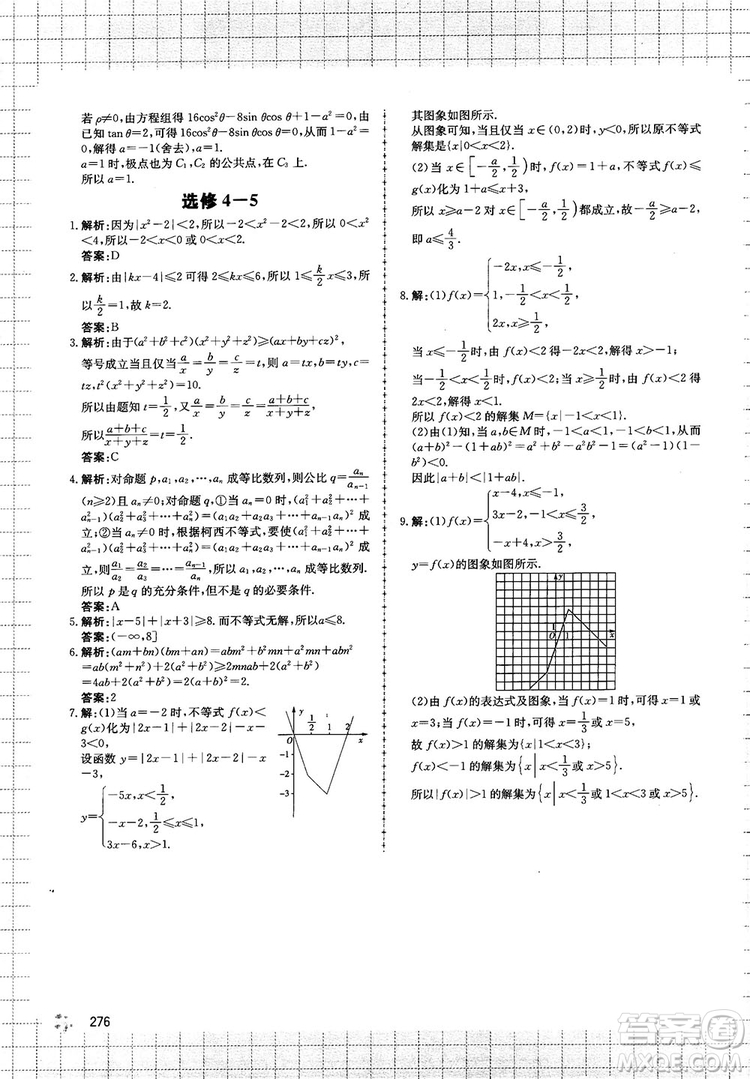 若ρ≠0,由方程组得16cos²θ-8sin θcos θ+1-a²=0,由
已知tan θ=2,可得16cos²θ-8sin θcos θ=0,从而1-a²
=0,解得a=-1(舍去),a=1.
a=1时,极点也为C₁,C₂的公共点,在C₃上.
所以a=1.
选修4-5
1.解析:因为|x²-2|<2,所以-2<x²-2<2,所以0<x²
<4,所以-2<x<0或0<x<2.
答案:D
2.解析:由|kx-4|≤2可得2≤kx≤6,所以1≤k/2 x≤3,所
以k/2=1,故k=2.
答案:B
3.解析:由于(a²+b²+c²)(x²+y²+z²)≥(ax+by+cz)²,
等号成立当且仅当a/x=b/y=c/z=t,则a=tx,b=ty,c=
tz,t²(x²+y²+z²)=10.
所以由题知t=1/2,又a/x=b/y=c/z=(a+b+c)/(x+y+z),
所以(a+b+c)/(x+y+z)=t=1/2.
答案:C
4.解析:对命题p,a₁,a₂,…,aₙ成等比数列,则公比q=aₙ/aₙ₋₁
(n≥2)且aₙ≠0;对命题q,①当aₙ=0时,(a₁²+a₂²+…+
aₙ₋₁²)(a₂²+a₃²+…+aₙ²)=(a₁a₂+a₂a₃+…+aₙ₋₁aₙ)²成
立;②当aₙ≠0时,根据柯西不等式,要使(a₁²+a₂²+…+
aₙ₋₁²)(a₂²+a₃²+…+aₙ²)=(a₁a₂+a₂a₃+…+aₙ₋₁aₙ)²成
立,则a₁/a₂=a₂/a₃=…=aₙ₋₁/aₙ,所以a₁,a₂,…,aₙ成等比数列.
所以p是q的充分条件,但不是q的必要条件.
答案:A
5.解析:|x-5|+|x+3|≥8.而不等式无解,故a≤8.
答案:(-∞,8]
6.解析:(am+bn)(bm+an)=abm²+b²mn+a²mn+abn²
=ab(m²+n²)+2(a²+b²)≥2mnab+2(a²+b²)
=4ab+2(a²+b²)=2(a+b)²=2.
答案:2
7.解:(1)当a=-2时,不等式f(x)<
g(x)化为|2x-1|+|2x-2|-x-
3<0,
设函数y=|2x-1|+|2x-2|-x
-3,
y={-5x,x<1/2,
-x-2,1/2≤x≤1,
3x-6,x>1.
y
1/2 1 2
0 x
-1
-2
-3
其图象如图所示.
从图象可知,当且仅当x∈(0,2)时,y<0.所以原不等式
解集是{x|0<x<2}.
(2)当x∈[-a/2,1/2)时,f(x)=1+a,不等式f(x)≤
g(x)化为1+a≤x+3,
所以x≥a-2对x∈[-a/2,1/2)都成立,故-a/2≥a-2,
即a≤4/3.
8.解:(1)f(x)={-2x,x≤-1/2,
1,-1/2<x<1/2,
2x,x≥1/2,
当x≤-1/2时,由f(x)<2得-2x<2,解得x>-1;
当-1/2<x<1/2时,f(x)<2;当x≥1/2时,由f(x)<2得
2x<2,解得x<1.
所以f(x)<2的解集M={x|-1<x<1}.
(2)由(1)知,当a,b∈M时,-1<a<1,-1<b<1,从而
(a+b)²-(1+ab)²=a²+b²-a²b²-1=(a²-1)(1-
b²)<0.
因此|a+b|<|1+ab|.
9.解:(1)f(x)={x-4,x≤-1,
3x-2,-1<x≤3/2,
-x+4,x>3/2.
y=f(x)的图象如图所示.
y
1
0 1 x
(2)由f(x)的表达式及图象,当f(x)=1时,可得x=1或
x=3;当f(x)=-1时,可得x=1/3或x=5,
故f(x)>1的解集为{x|1<x<3};
f(x)<-1的解集为{x|x<1/3或x>5}.
所以|f(x)|>1的解集为{x|x<1/3或1<x<3或x>5}.
276
答案圈
MXQE.COM